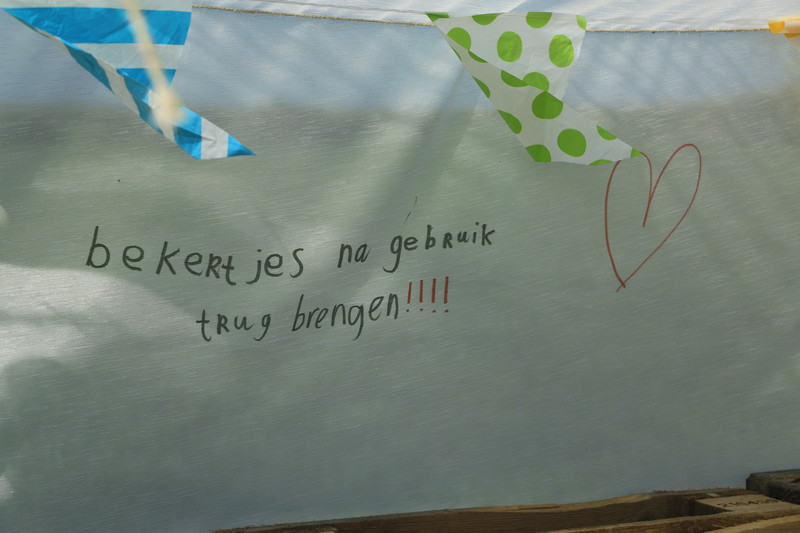 bekertjes na gebruik
trug brengen!!!!